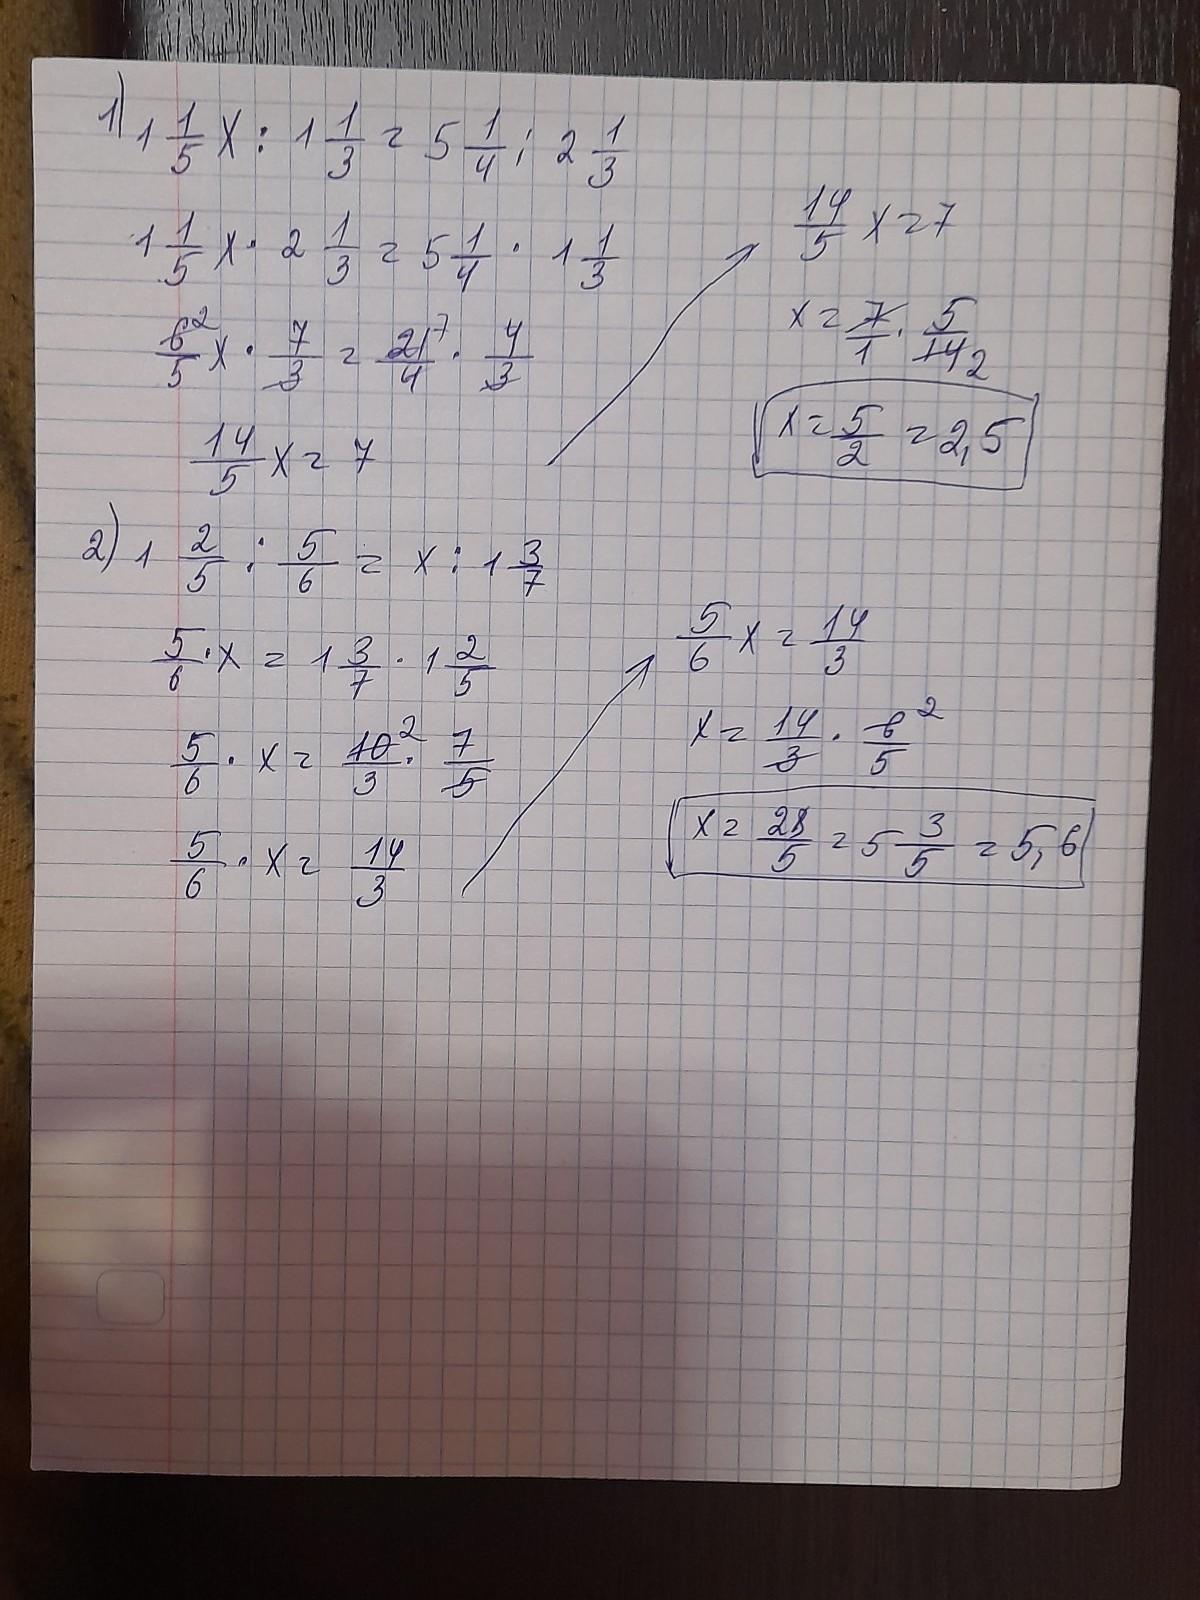 1) 1 1/5 x : 1 1/3 = 5 1/4 : 2 1/3
1 1/5 x · 2 1/3 = 5 1/4 · 1 1/3
6²/5 x · 7/3 = 21⁷/4 · 4/3
14/5 x = 7
14/5 x = 7
x = 7/1 · 5/14₂
x = 5/2 = 2,5
2) 1 2/5 : 5/6 = x : 1 3/7
5/6 · x = 1 3/7 · 1 2/5
5/6 · x = 10²/3 · 7/5
5/6 · x = 14/3
5/6 x = 14/3
x = 14/3 · 6²/5
x = 28/5 = 5 3/5 = 5,6